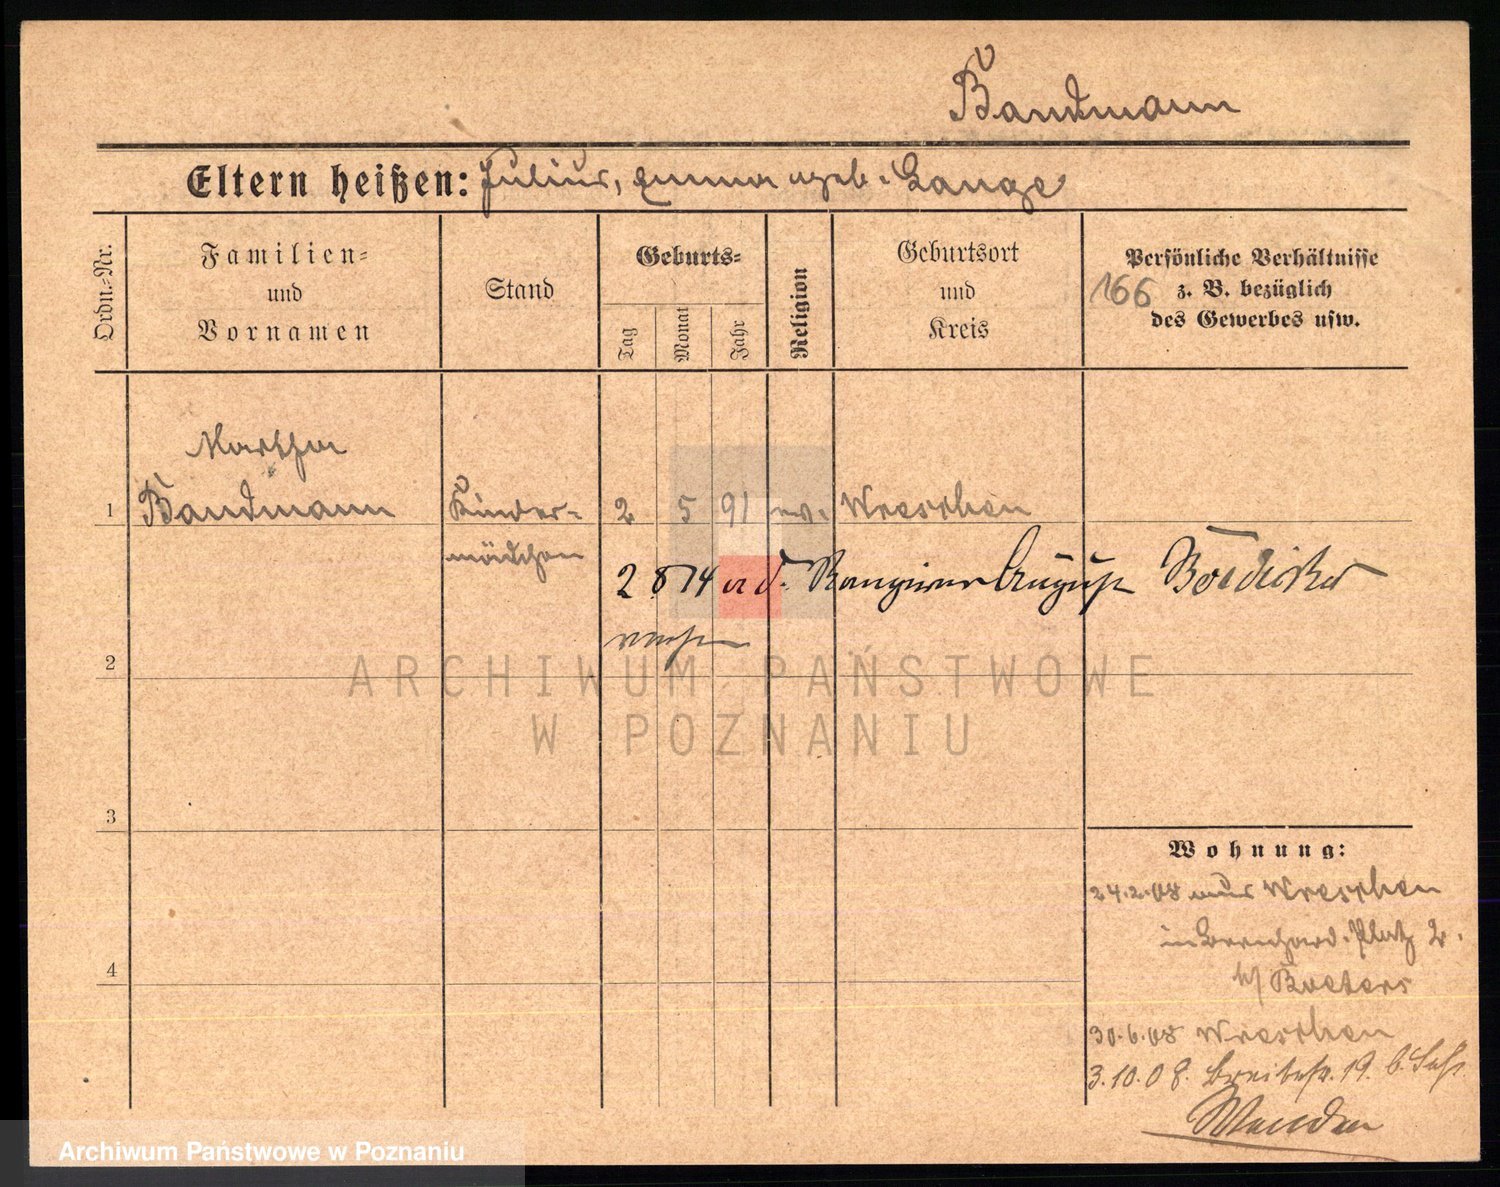 Bandmann
Eltern heißen: Julius, Emma geb. Lange
Ordn.-Nr.
Familien-
und
Vornamen
Stand
Geburts-
Tag
Monat
Jahr
Religion
Geburtsort
und
Kreis
Persönliche Verhältnisse
z. B. bezüglich
des Gewerbes usw.
166
Martha
1 Bandmann Kinder- 2 5 91 ev. Wreschen
mädchen
2 8 14 a. d. Rangierer August Boedicker
verh
2
ARCHIWUM PAŃSTWOWE
W POZNANIU
3
Wohnung:
24.2.08 aus Wreschen
in Bernhard. Platz 2.
b/ Boeters
4
30.6.08 Wreschen
3.10.08. Breitestr. 19. b.
Archiwum Państwowe w Poznaniu